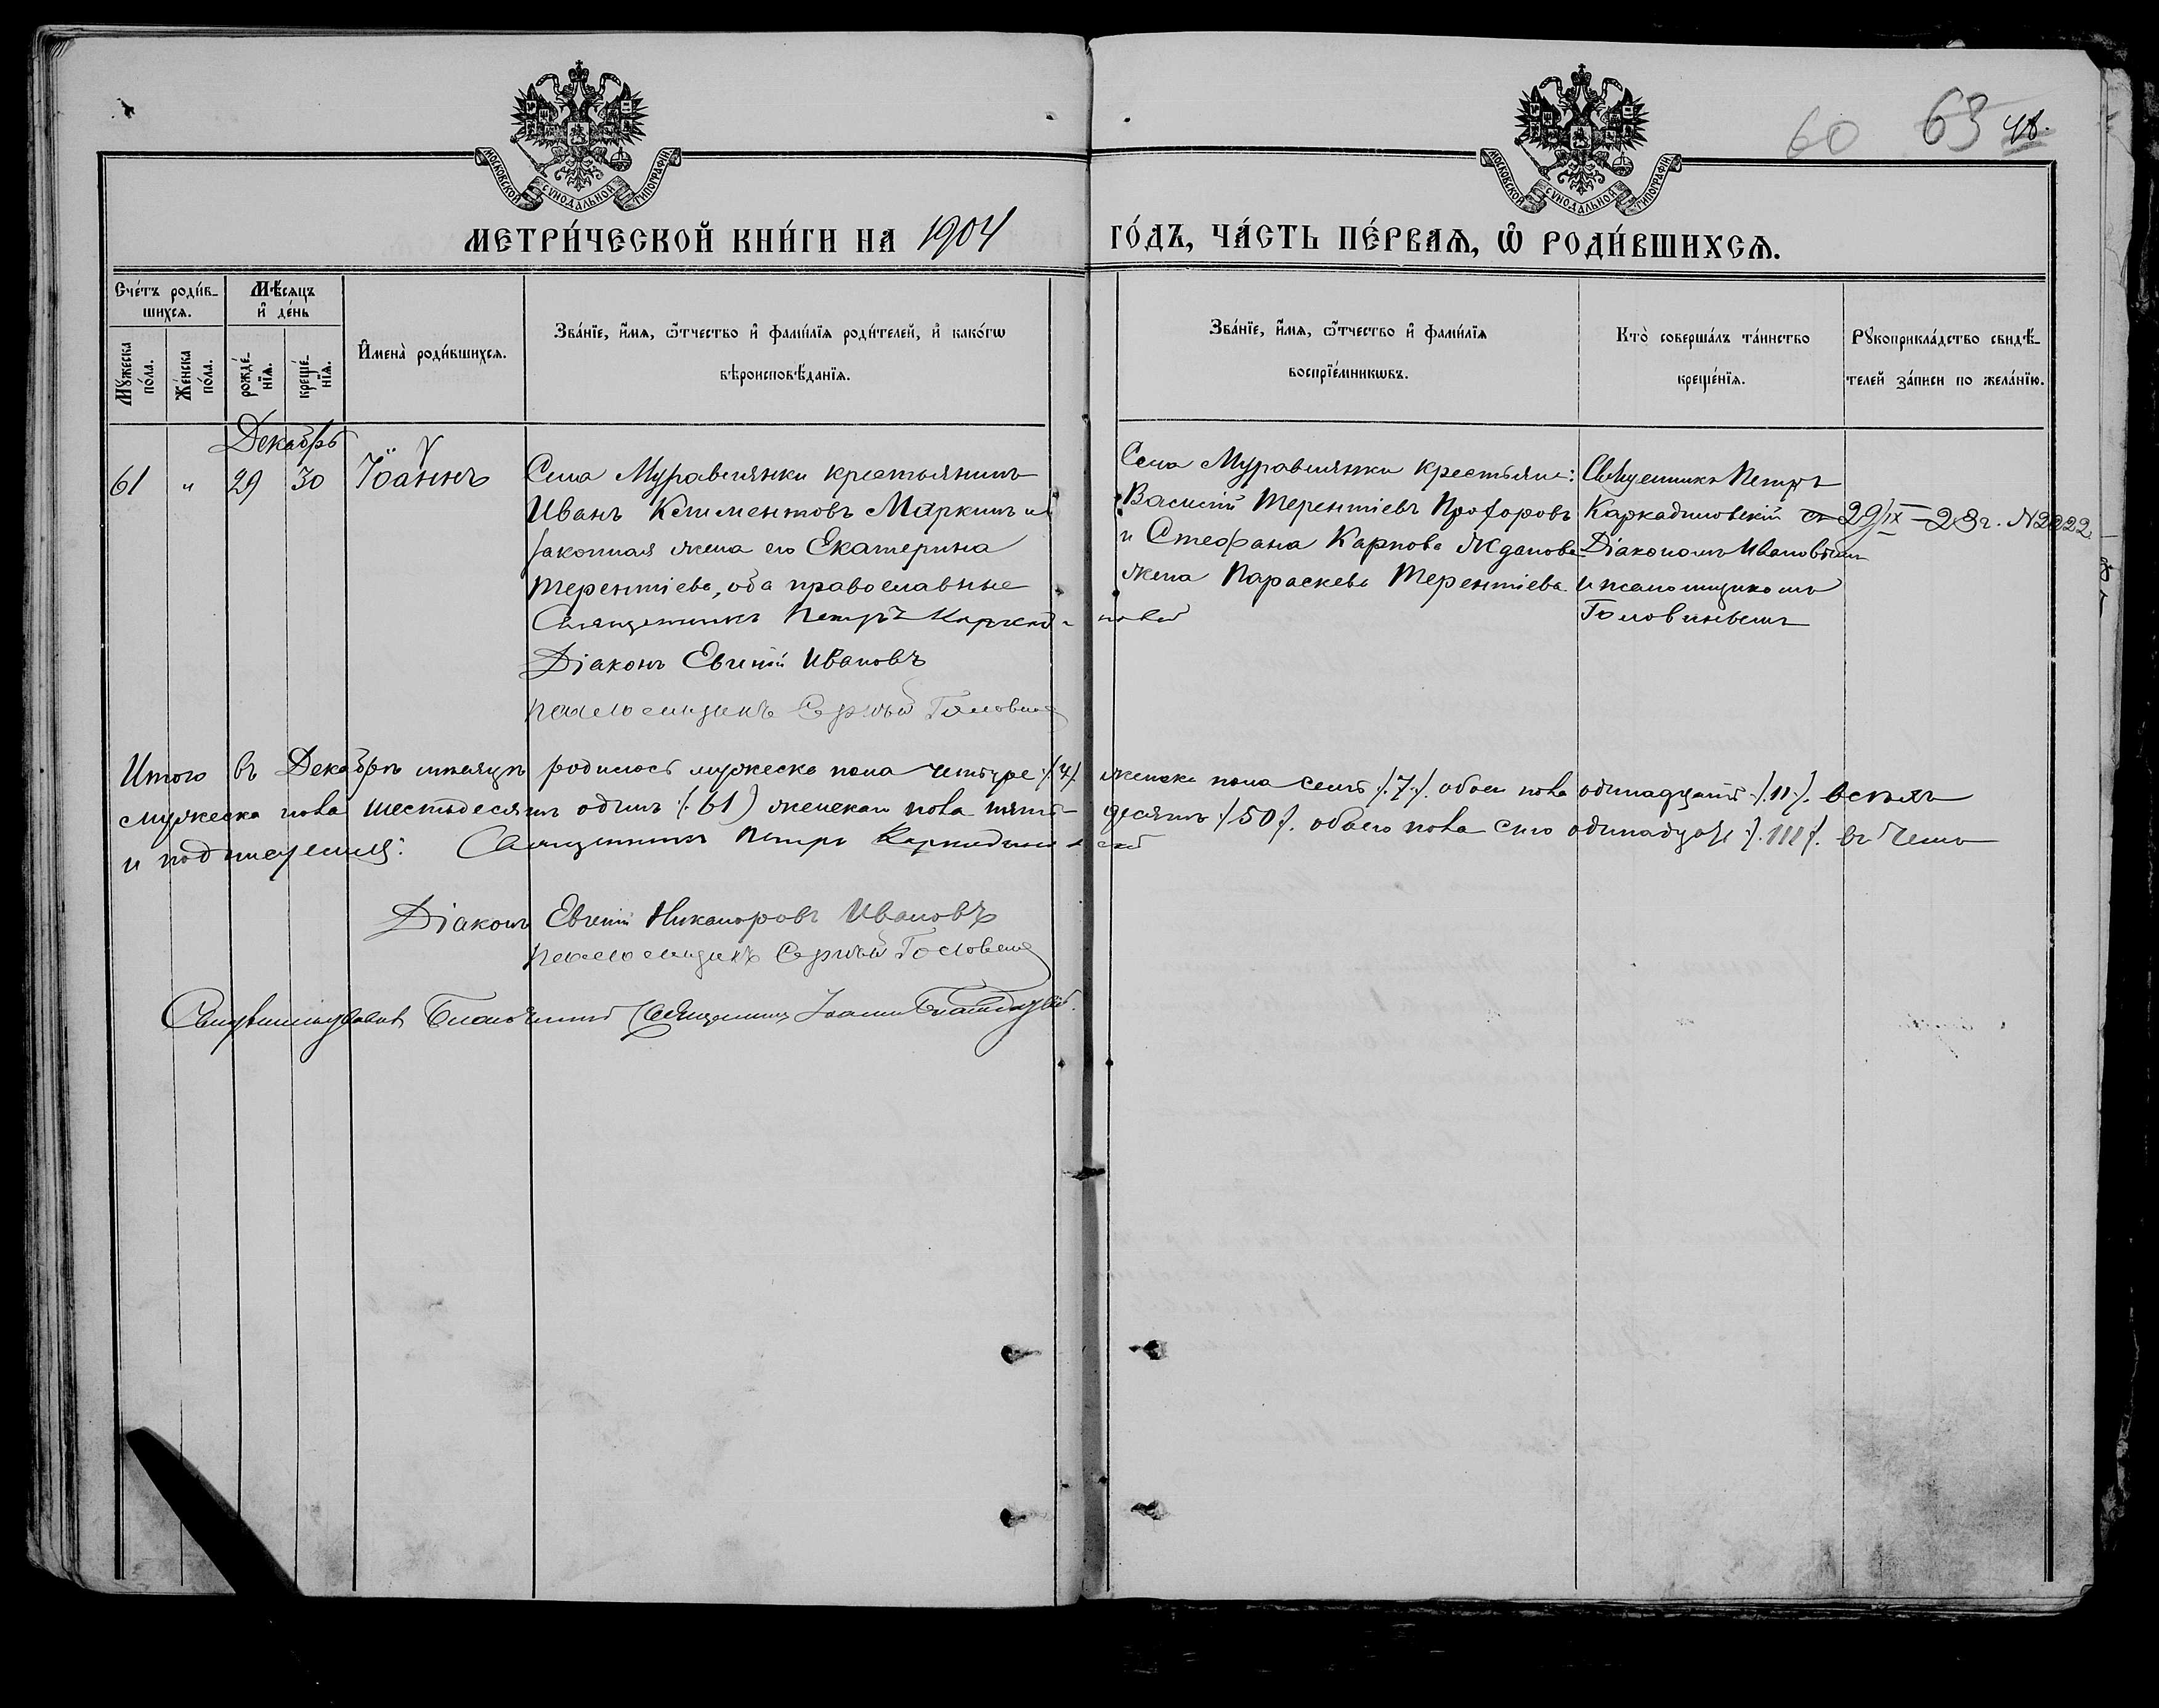 60 63 48.
МОСКОВСКОЙ СѴНОДАЛЬНОЙ ТИПОГРАФІИ
МОСКОВСКОЙ СѴНОДАЛЬНОЙ ТИПОГРАФІИ
МЕТРИ́ЧЕСКОЙ КНИ́ГИ НА 1904
ГО́ДЪ, ЧА́СТЬ ПЕ́РВАѦ, Ѽ РОДИ́ВШИХСѦ.
Сче́тъ роди́в-
шихсѧ.
Мѣ́сѧцъ
и҆ де́нь
Мꙋ́жеска
по́ла.
Же́нска
по́ла.
рожде́-
нїѧ.
креще́-
нїѧ.
И҆мена̀ роди́вшихсѧ.
Зва́нїе, и҆́мѧ, ѻ҆́тчество и҆ фами́лїѧ роди́телей, и҆ како́гѡ
вѣроисповѣ́данїѧ.
Зва́нїе, и҆́мѧ, ѻ҆́тчество и҆ фами́лїѧ
воспрїе́мникѡвъ.
Кто̀ соверша́лъ та́инство
креще́нїѧ.
Рꙋкоприкла́дство свидѣ́-
телей за́писи по жела́нїю.
Декабрь
61 " 29 30 Іоаннъ
Села Муравлянки крестьянинъ
Иванъ Климентовъ Маркинъ и
законная жена его Екатерина
Терентіева, оба православные
Священникъ Петръ
Діаконъ Евгеній Ивановъ
Псаломщикъ Сергѣй Головинъ
Села Муравлянки крестьян:
Василій Терентіевъ Прохоровъ
и Стефана Карпова Жданова
жена Параскева Терентіева
Священникъ Петръ
Каркадиновскій съ
Діакономъ Ивановымъ
и псаломщикомъ
Головинымъ
29/IX – 28г. N2022
Итого въ Декабрѣ мѣсяцѣ родилось мужеска пола четыре /4/. женска пола семь /.7./. обоего пола одинадцать /.11./. Всѣхъ
мужеска пола шестьдесятъ одинъ (61) женскаго пола пять-десятъ /50/. обоего пола сто одинадцать /.111/. въ чемъ
и подписуемся: Священникъ Петръ
Діаконъ Евгеній Никаноровъ Ивановъ
Псаломщикъ Сергѣй Головинъ
Благочинный Священникъ Іоаннъ